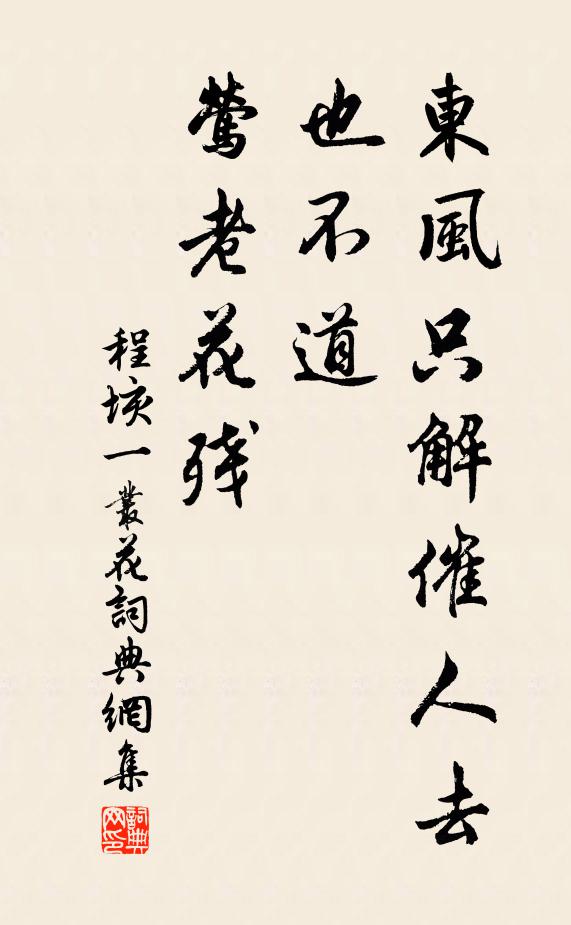 東風只解催人去
也不道
鶯老花残
程垓一叢花詞典網集
詞典网印